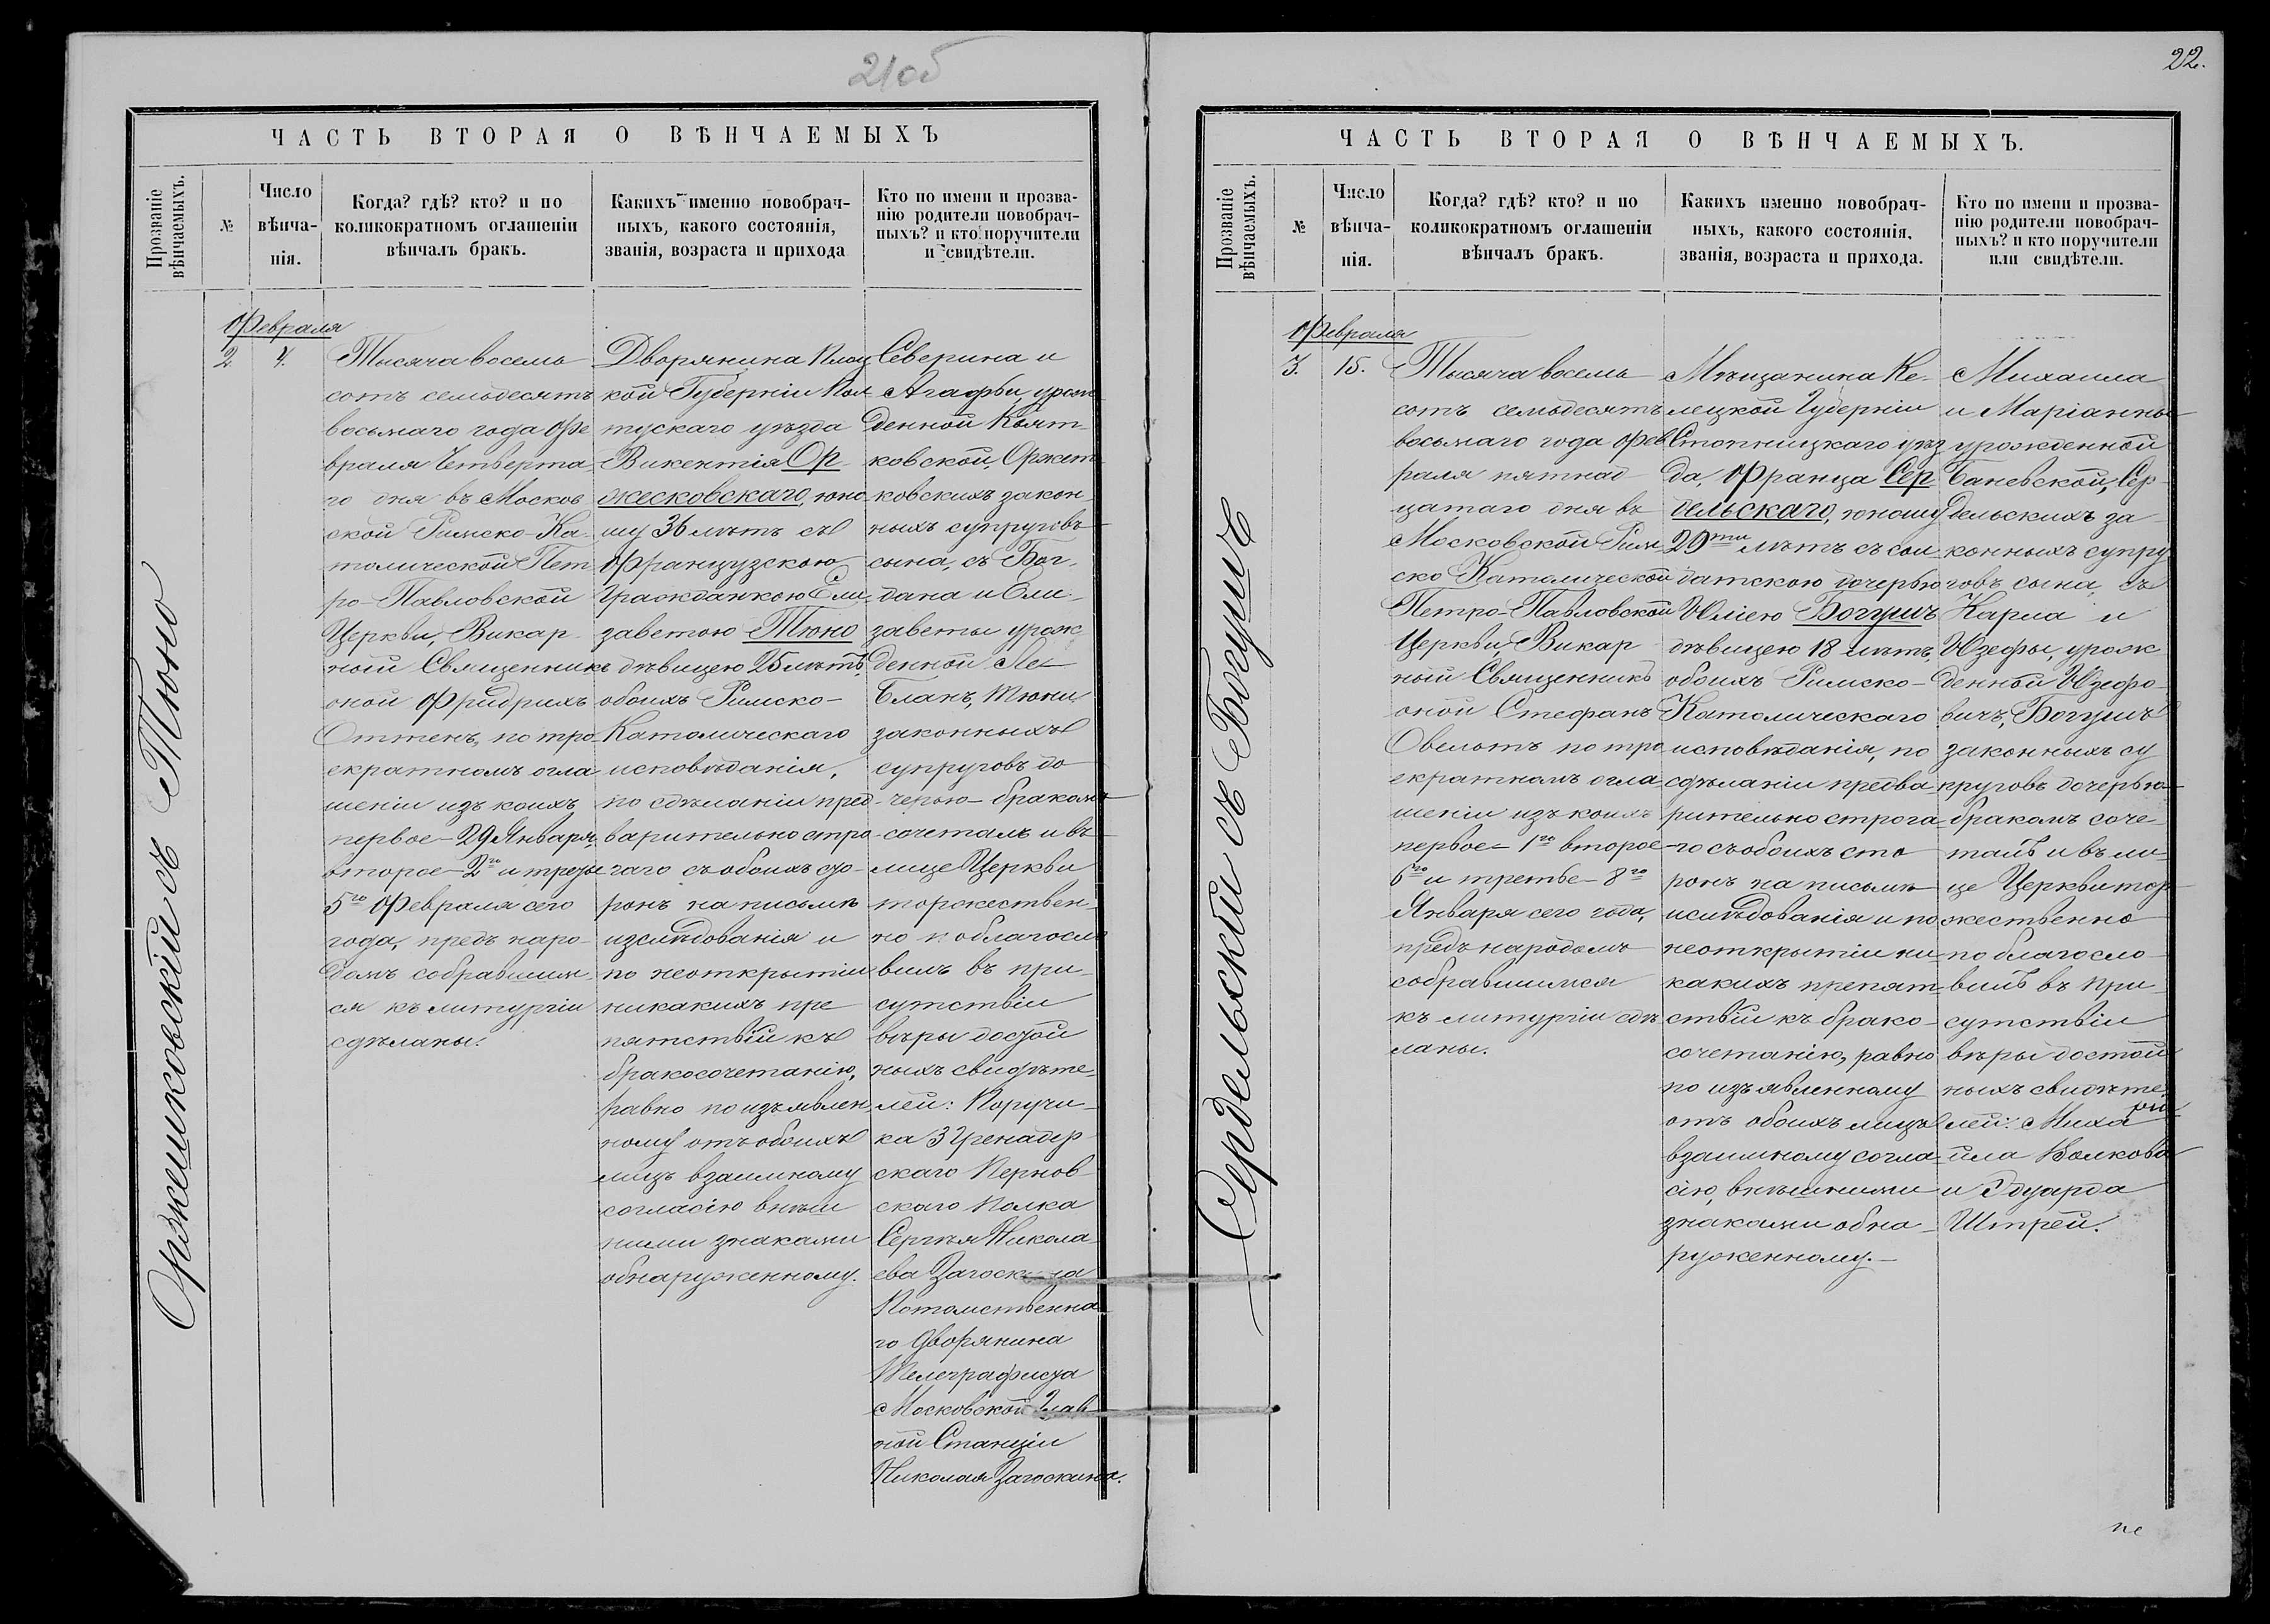 21об
ЧАСТЬ ВТОРАЯ О ВѢНЧАЕМЫХЪ
Прозваніе
вѣнчаемыхъ.
№
Число
вѣнча-
нія.
Когда? гдѣ? кто? и по
коликократномъ оглашеніи
вѣнчалъ бракъ.
Какихъ именно новобрач-
ныхъ, какого состоянія,
званія, возраста и прихода
Кто по имени и прозва-
нію родители новобрач-
ныхъ? и кто поручители
и свидѣтели.
Оржешковскій съ Тюно
Февраля
2
4.
Тысяча восемь
сотъ семьдесятъ
восьмаго года Фе
враля Четверта
го дня въ Москов
ской Римско-Ка
толической Пет
ро-Павловской
Церкви, Викар
ный Священникъ
оной Фридрихъ
Оттенъ, по тро
екратномъ огла
шеніи изъ коихъ
первое-29 Января,
второе-2го и третье
5го Февраля сего
года, предъ наро-
домъ собравшим
ся къ литургіи
сдѣланы.
Дворянина Плоц
кой Губерніи Пул
тускаго уѣзда
Викентія Ор
жесковскаго, юно
шу 36 лѣтъ съ
Французскою
Гражданкою Ели
заветою Тюно
дѣвицею 25 лѣтъ,
обоихъ Римско-
Католическаго
исповѣданія,
по сдѣланіи пред
варительно стро
гаго съ обоихъ сто-
ронъ на письмѣ
изслѣдованія и
по неоткрытіи
никакихъ пре
пятствій къ
бракосочетанію,
равно по изъявлен
ному отъ обоихъ
лицъ взаимному
согласію внѣш
ними знаками
обнаруженному.
Северина и
Агафьи, урож
денной Квят-
ковской, Оржеш
ковскихъ закон
ныхъ супруговъ
сына, съ Бог-
дана и Ели-
заветы урож
денной Ле-
Бланъ, Тюни
законныхъ
супруговъ до
черью-бракомъ
сочеталъ и въ
лице Церкви
торжествен-
но поблагосло
вилъ въ при-
сутствіи
вѣры достой
ныхъ свидѣте-
лей: Поручи-
ка 3 Гренадер
скаго Пернов
скаго Полка
Сергѣя Никола
ева Загоскина
Потомственна
го Дворянина
Телеграфиста
Московской Глав
ной Станціи
Николая Загоскина.
22.
ЧАСТЬ ВТОРАЯ О ВѢНЧАЕМЫХЪ.
Прозваніе
вѣнчаемыхъ.
№
Число
вѣнча-
нія.
Когда? гдѣ? кто? и по
коликократномъ оглашеніи
вѣнчалъ бракъ.
Какихъ именно новобрач-
ныхъ, какого состоянія,
званія, возраста и прихода.
Кто по имени и прозва-
нію родители новобрач-
ныхъ? и кто поручители
или свидѣтели.
Сердельскій съ Богушъ
Февраля
3.
15.
Тысяча восемь
сотъ семьдесятъ
восьмаго года Фев
раля пятнад
цатаго дня въ
Московской Рим
ско Католической
Петро-Павловской
Церкви, Викар
ный Священникъ
оной Стефанъ
Овельтъ по тро
екратномъ огла
шеніи изъ коихъ
первое-1го второе
6го и третье-8го
Января сего года,
предъ народомъ
собравшимся
къ литургіи сдѣ
ланы.
Мѣщанина Ке-
лецкой Губерніи
Стопницкаго уѣз
да, Франца Сер
дельскаго, юношу
29ти лѣтъ съ сол
датскою дочерью
Юліею Богушъ
дѣвицею 18 лѣтъ,
обоихъ Римско-
Католическаго
исповѣданія, по
сдѣланіи предва
рительно строга
го съ обоихъ сто
ронъ на письмѣ
изслѣдованія и по
неоткрытіи ни
какихъ препят
ствій къ брако-
сочетанію, равно
по изъявленному
отъ обоихъ лицъ
взаимному согла
сію, внѣшними
знаками обна-
руженному.-
Михаила
и Маріанны
урожденной
Баневской, Сер
дельскихъ за
конныхъ супру
говъ сына, съ
Карла и
Юзефы, урож
денной Юзефо-
вичъ, Богушъ
законныхъ су
пруговъ дочерью
бракомъ соче-
талъ и въ ли-
це Церкви тор
жественно
по благосло
вилъ въ при-
сутствіи
вѣры достой
ныхъ свидѣте
лей: Миха
ила Волкова
и Эдуарда
Штрей.